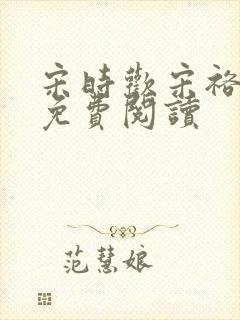 宋時歡宋裕
免費閱讀
范慧娘